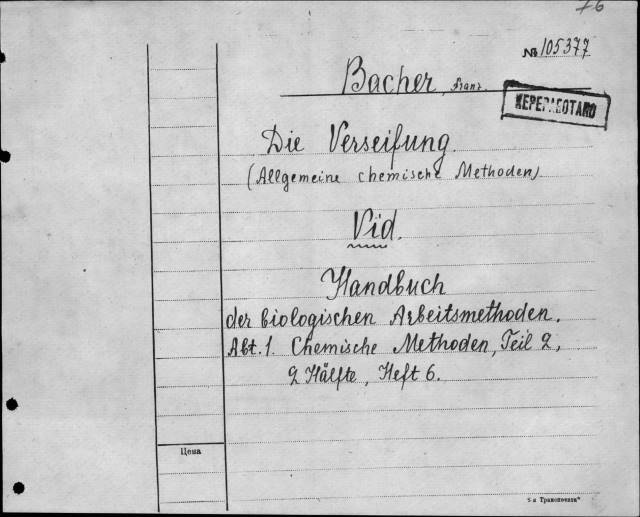 76
№ 105377
Bacher, Franz.
Die Verseifung.
(Allgemeine chemische Methoden)
Vid.
Handbuch
der biologischen Arbeitsmethoden.
Abt. 1. Chemische Methoden, Teil 2,
2 Hälfte, Heft 6.
Цена